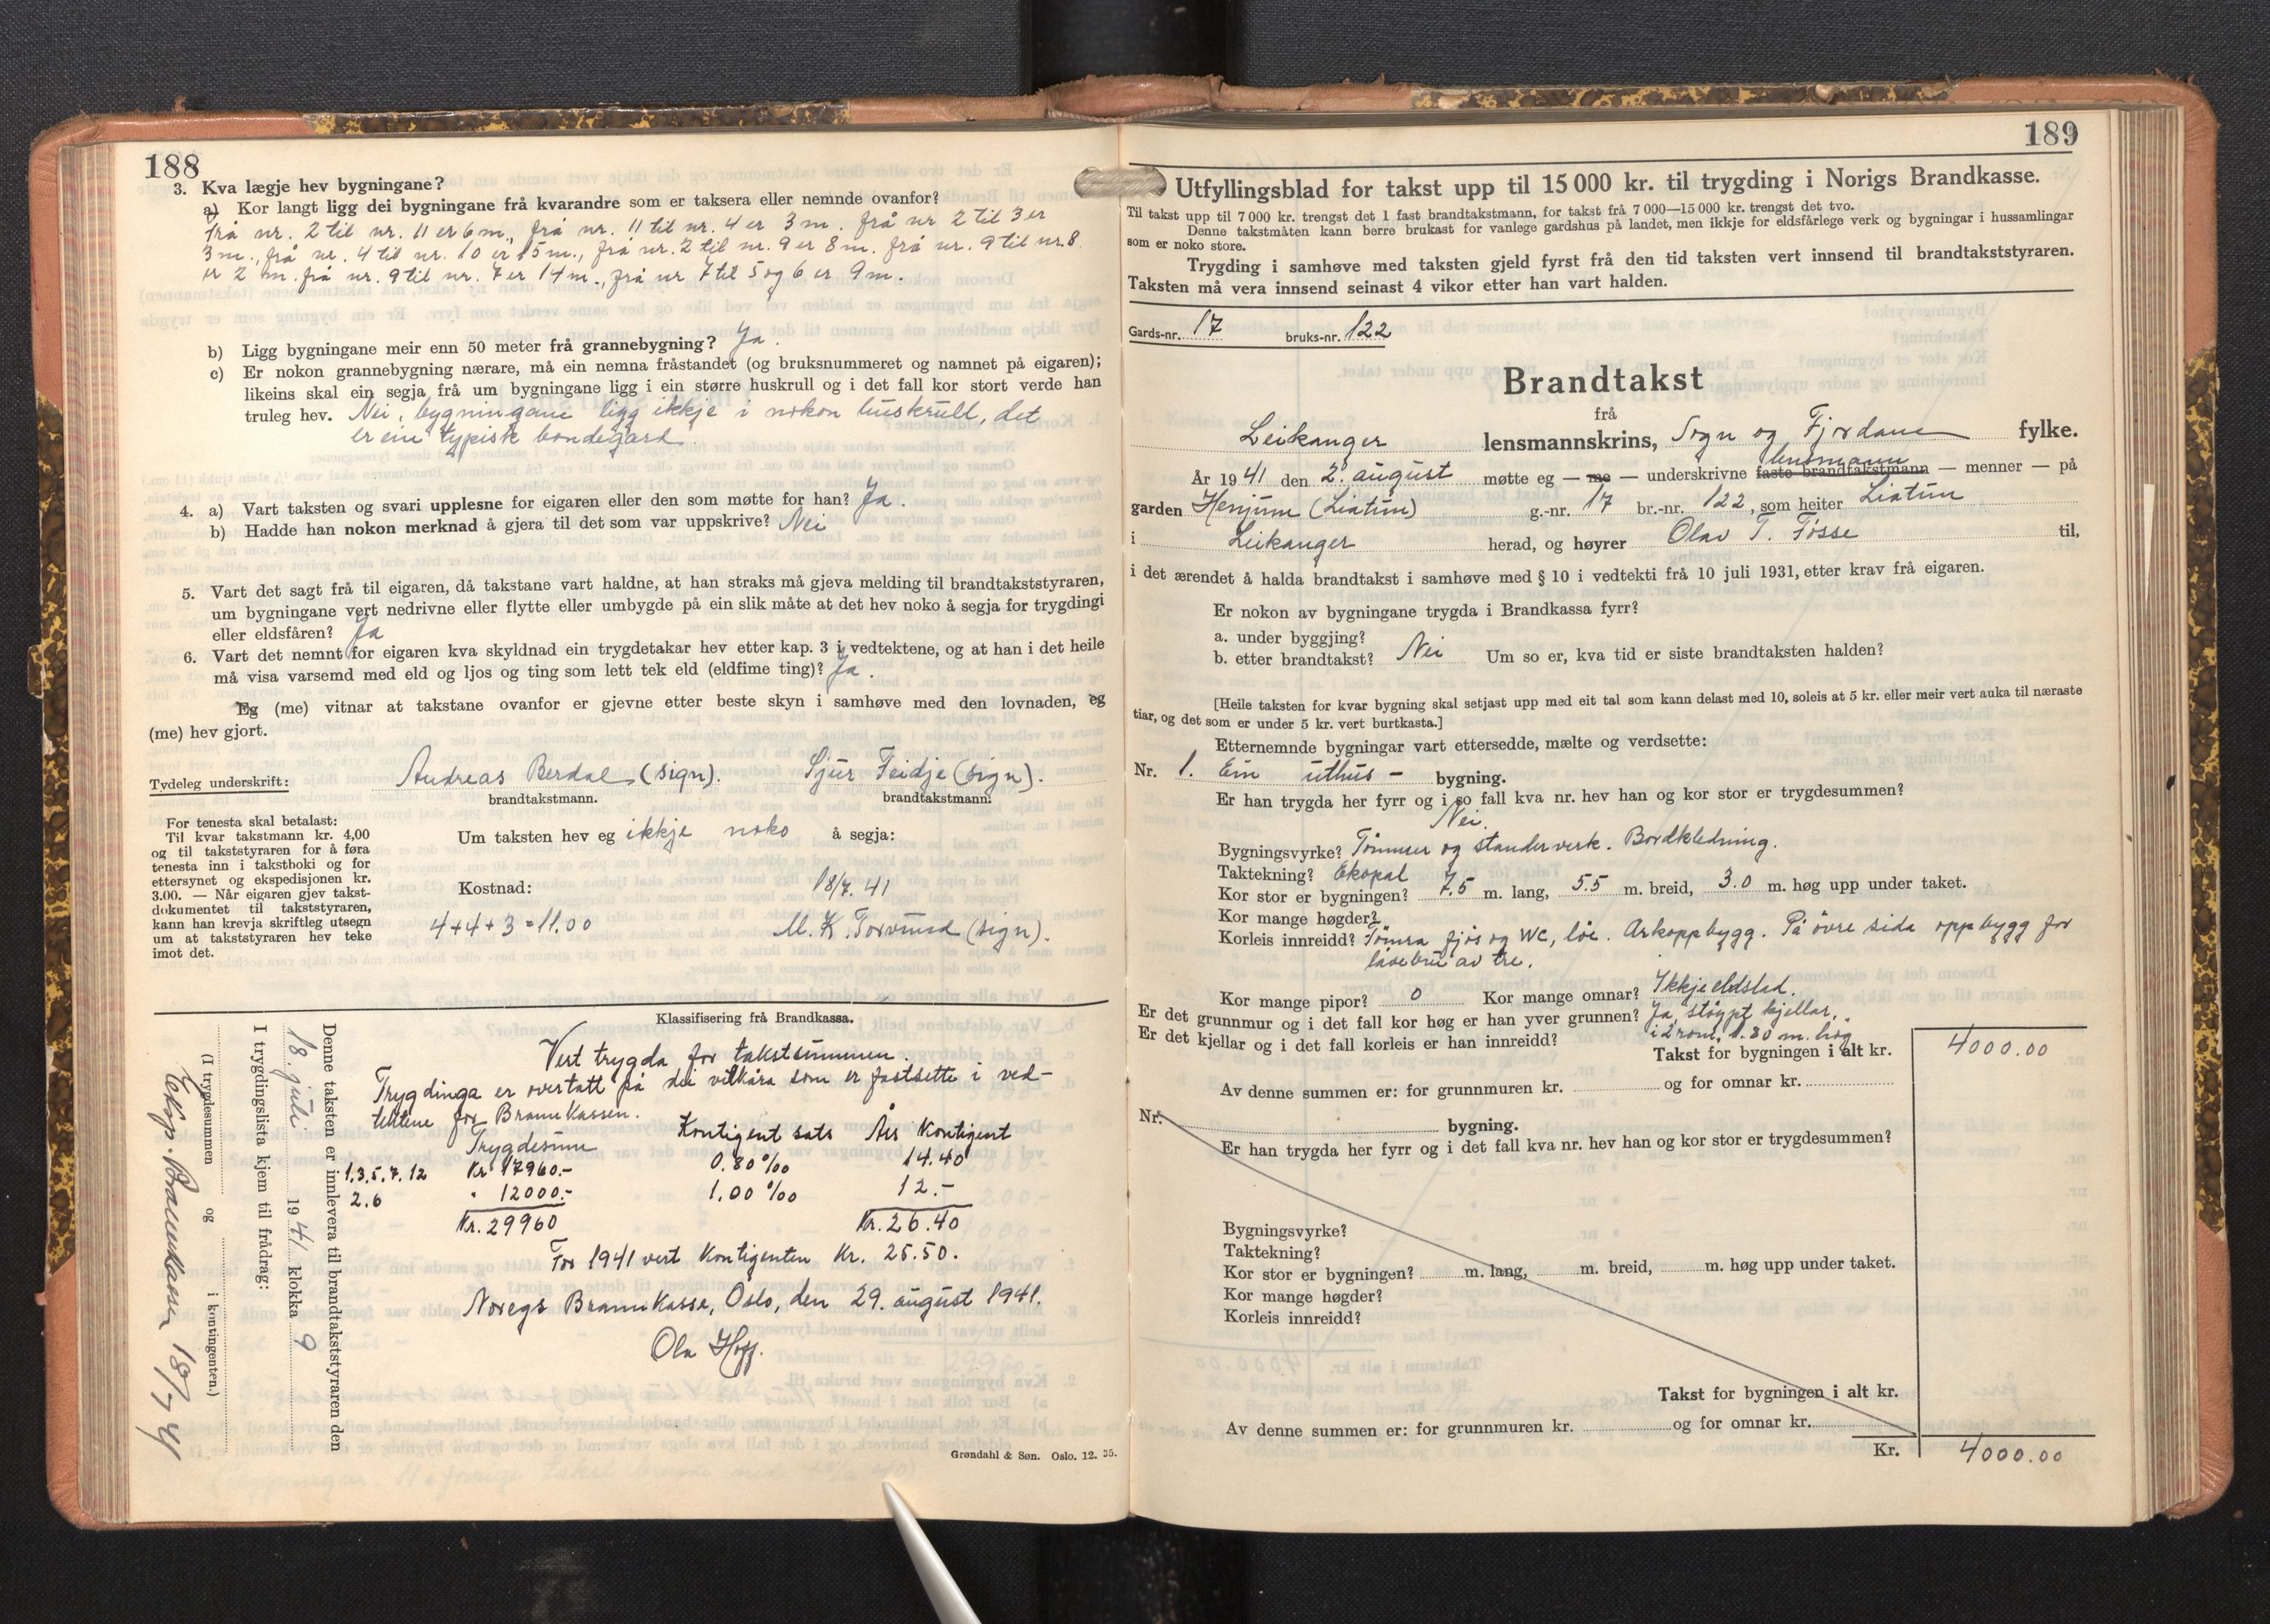 188
3. Kva lægje hev bygningane?
a) Kor langt ligg dei bygningane frå kvarandre som er taksera eller nemnde ovanfor?
Frå nr. 2 til nr. 11 er 6 m., frå nr. 11 til nr. 4 er 3 m. frå nr 2 til 3 er
3 m., frå nr. 4 til nr. 10 er 15 m., frå nr. 2 til nr. 9 er 8 m. frå nr. 9 til nr. 8
er 2 m. frå nr. 9 til nr. 7 er 14 m., frå nr 7 til 5 og 6 er 9 m.
b) Ligg bygningane meir enn 50 meter frå grannebygning? Ja.
c) Er nokon grannebygning nærare, må ein nemna fråstandet (og bruksnummeret og namnet på eigaren);
likeins skal ein segja frå um bygningane ligg i ein større huskrull og i det fall kor stort verde han
truleg hev. Nei, bygningane ligg ikkje i nokon huskrull, det
er ein typisk bondegard.
4. a) Vart taksten og svari upplesne for eigaren eller den som møtte for han? Ja.
b) Hadde han nokon merknad å gjera til det som var uppskrive? Nei
5. Vart det sagt frå til eigaren, då takstane vart haldne, at han straks må gjeva melding til brandtakststyraren,
um bygningane vert nedrivne eller flytte eller umbygde på ein slik måte at det hev noko å segja for trygdingi
eller eldsfåren? Ja
6. Vart det nemnt for eigaren kva skyldnad ein trygdetakar hev etter kap. 3 i vedtektene, og at han i det heile
må visa varsemd med eld og ljos og ting som lett tek eld (eldfime ting)? Ja.
Eg (me) vitnar at takstane ovanfor er gjevne etter beste skyn i samhøve med den lovnaden, eg
(me) hev gjort.
Tydeleg underskrift: Andreas Berdal (sign). Sjur Feidje (sign).
brandtakstmann. brandtakstmann.
For tenesta skal betalast:
Til kvar takstmann kr. 4,00
og til takststyraren for å føra
tenesta inn i takstboki og for
ettersynet og ekspedisjonen kr.
3.00. — Når eigaren gjev takst-
dokumentet til takststyraren,
kann han krevja skriftleg utsegn
um at takststyraren hev teke
imot det.
Um taksten hev eg ikkje noko å segja:
Kostnad: 18/7. 41
4+4+3=11.00 M. K. Torvund (sign).
Klassifisering frå Brandkassa.
Vert trygda for takstsummen.
Trygdinga er overtatt på dei vilkåra som er fastsette i ved-
tektene for Brannkassen.
Trygdesum Kontigent sats Års Kontigent
1,3,5,7,12 Kr 17960.- 0.80 ‰ 14.40
2,6 " 12000.- 1,00 ‰ 12.-
Kr. 29960 Kr. 26.40
For 1941 vert Kontigenten Kr. 25.50.
Noregs Brannkasse, Oslo, den 29. august 1941.
Ola Hoff.
Denne taksten er innlevera til brandtakststyraren den
18. juli 1941 klokka 9
I trygdingslista kjem til frådrag:
(I trygdesummen og i kontingenten.)
Eksp. Brannkassen 18/7 41
Grøndahl & Søn. Oslo. 12. 35.
189
Utfyllingsblad for takst upp til 15 000 kr. til trygding i Norigs Brandkasse.
Til takst upp til 7 000 kr. trengst det 1 fast brandtakstmann, for takst frå 7 000—15 000 kr. trengst det tvo.
Denne takstmåten kann berre brukast for vanlege gardshus på landet, men ikkje for eldsfårlege verk og bygningar i hussamlingar
som er noko store.
Trygding i samhøve med taksten gjeld fyrst frå den tid taksten vert innsend til brandtakststyraren.
Taksten må vera innsend seinast 4 vikor etter han vart halden.
Gards-nr. 17 bruks-nr. 122
Brandtakst
frå
Leikanger lensmannskrins, Sogn og Fjordane fylke.
lensmann
År 1941 den 2. august møtte eg — me — underskrivne faste brandtakstmann — menner — på
garden Henjum (Liatun) g.-nr. 17 br.-nr. 122, som heiter Liatun
i Leikanger herad, og høyrer Olav T. Fosse til,
i det ærendet å halda brandtakst i samhøve med § 10 i vedtekti frå 10 juli 1931, etter krav frå eigaren.
Er nokon av bygningane trygda i Brandkassa fyrr?
a. under byggjing?
b. etter brandtakst? Nei Um so er, kva tid er siste brandtaksten halden?
[Heile taksten for kvar bygning skal setjast upp med eit tal som kann delast med 10, soleis at 5 kr. eller meir vert auka til næraste
tiar, og det som er under 5 kr. vert burtkasta.]
Etternemnde bygningar vart ettersedde, mælte og verdsette:
Nr. 1. Ein uthus- bygning.
Er han trygda her fyrr og i so fall kva nr. hev han og kor stor er trygdesummen?
Nei.
Bygningsvyrke? Tømmer og standerverk. Bordkledning.
Taktekning? Ekopal
Kor stor er bygningen? 7.5 m. lang, 5.5 m. breid, 3.0 m. høg upp under taket.
Kor mange høgder?
Korleis innreidd? Tømra fjøs og WC, løe. Arkoppbygg. På øvre sida oppbygg for
låvebru av tre.
Kor mange pipor? 0 Kor mange omnar? Ikkje eldstad.
Er det grunnmur og i det fall kor høg er han yver grunnen? Ja, støypt kjellar,
Er det kjellar og i det fall korleis er han innreidd? i 2 rom, 1.80 m. høg
Takst for bygningen i alt kr. 4000.00
Av denne summen er: for grunnmuren kr. og for omnar kr.
Nr. bygning.
Er han trygda her fyrr og i det fall kva nr. hev han og kor stor er trygdesummen?
Bygningsvyrke?
Taktekning?
Kor stor er bygningen? m. lang, m. breid, m. høg upp under taket.
Kor mange høgder?
Korleis innreidd?
Takst for bygningen i alt kr.
Av denne summen er: for grunnmuren kr. og for omnar kr.
Kr. 4000.00